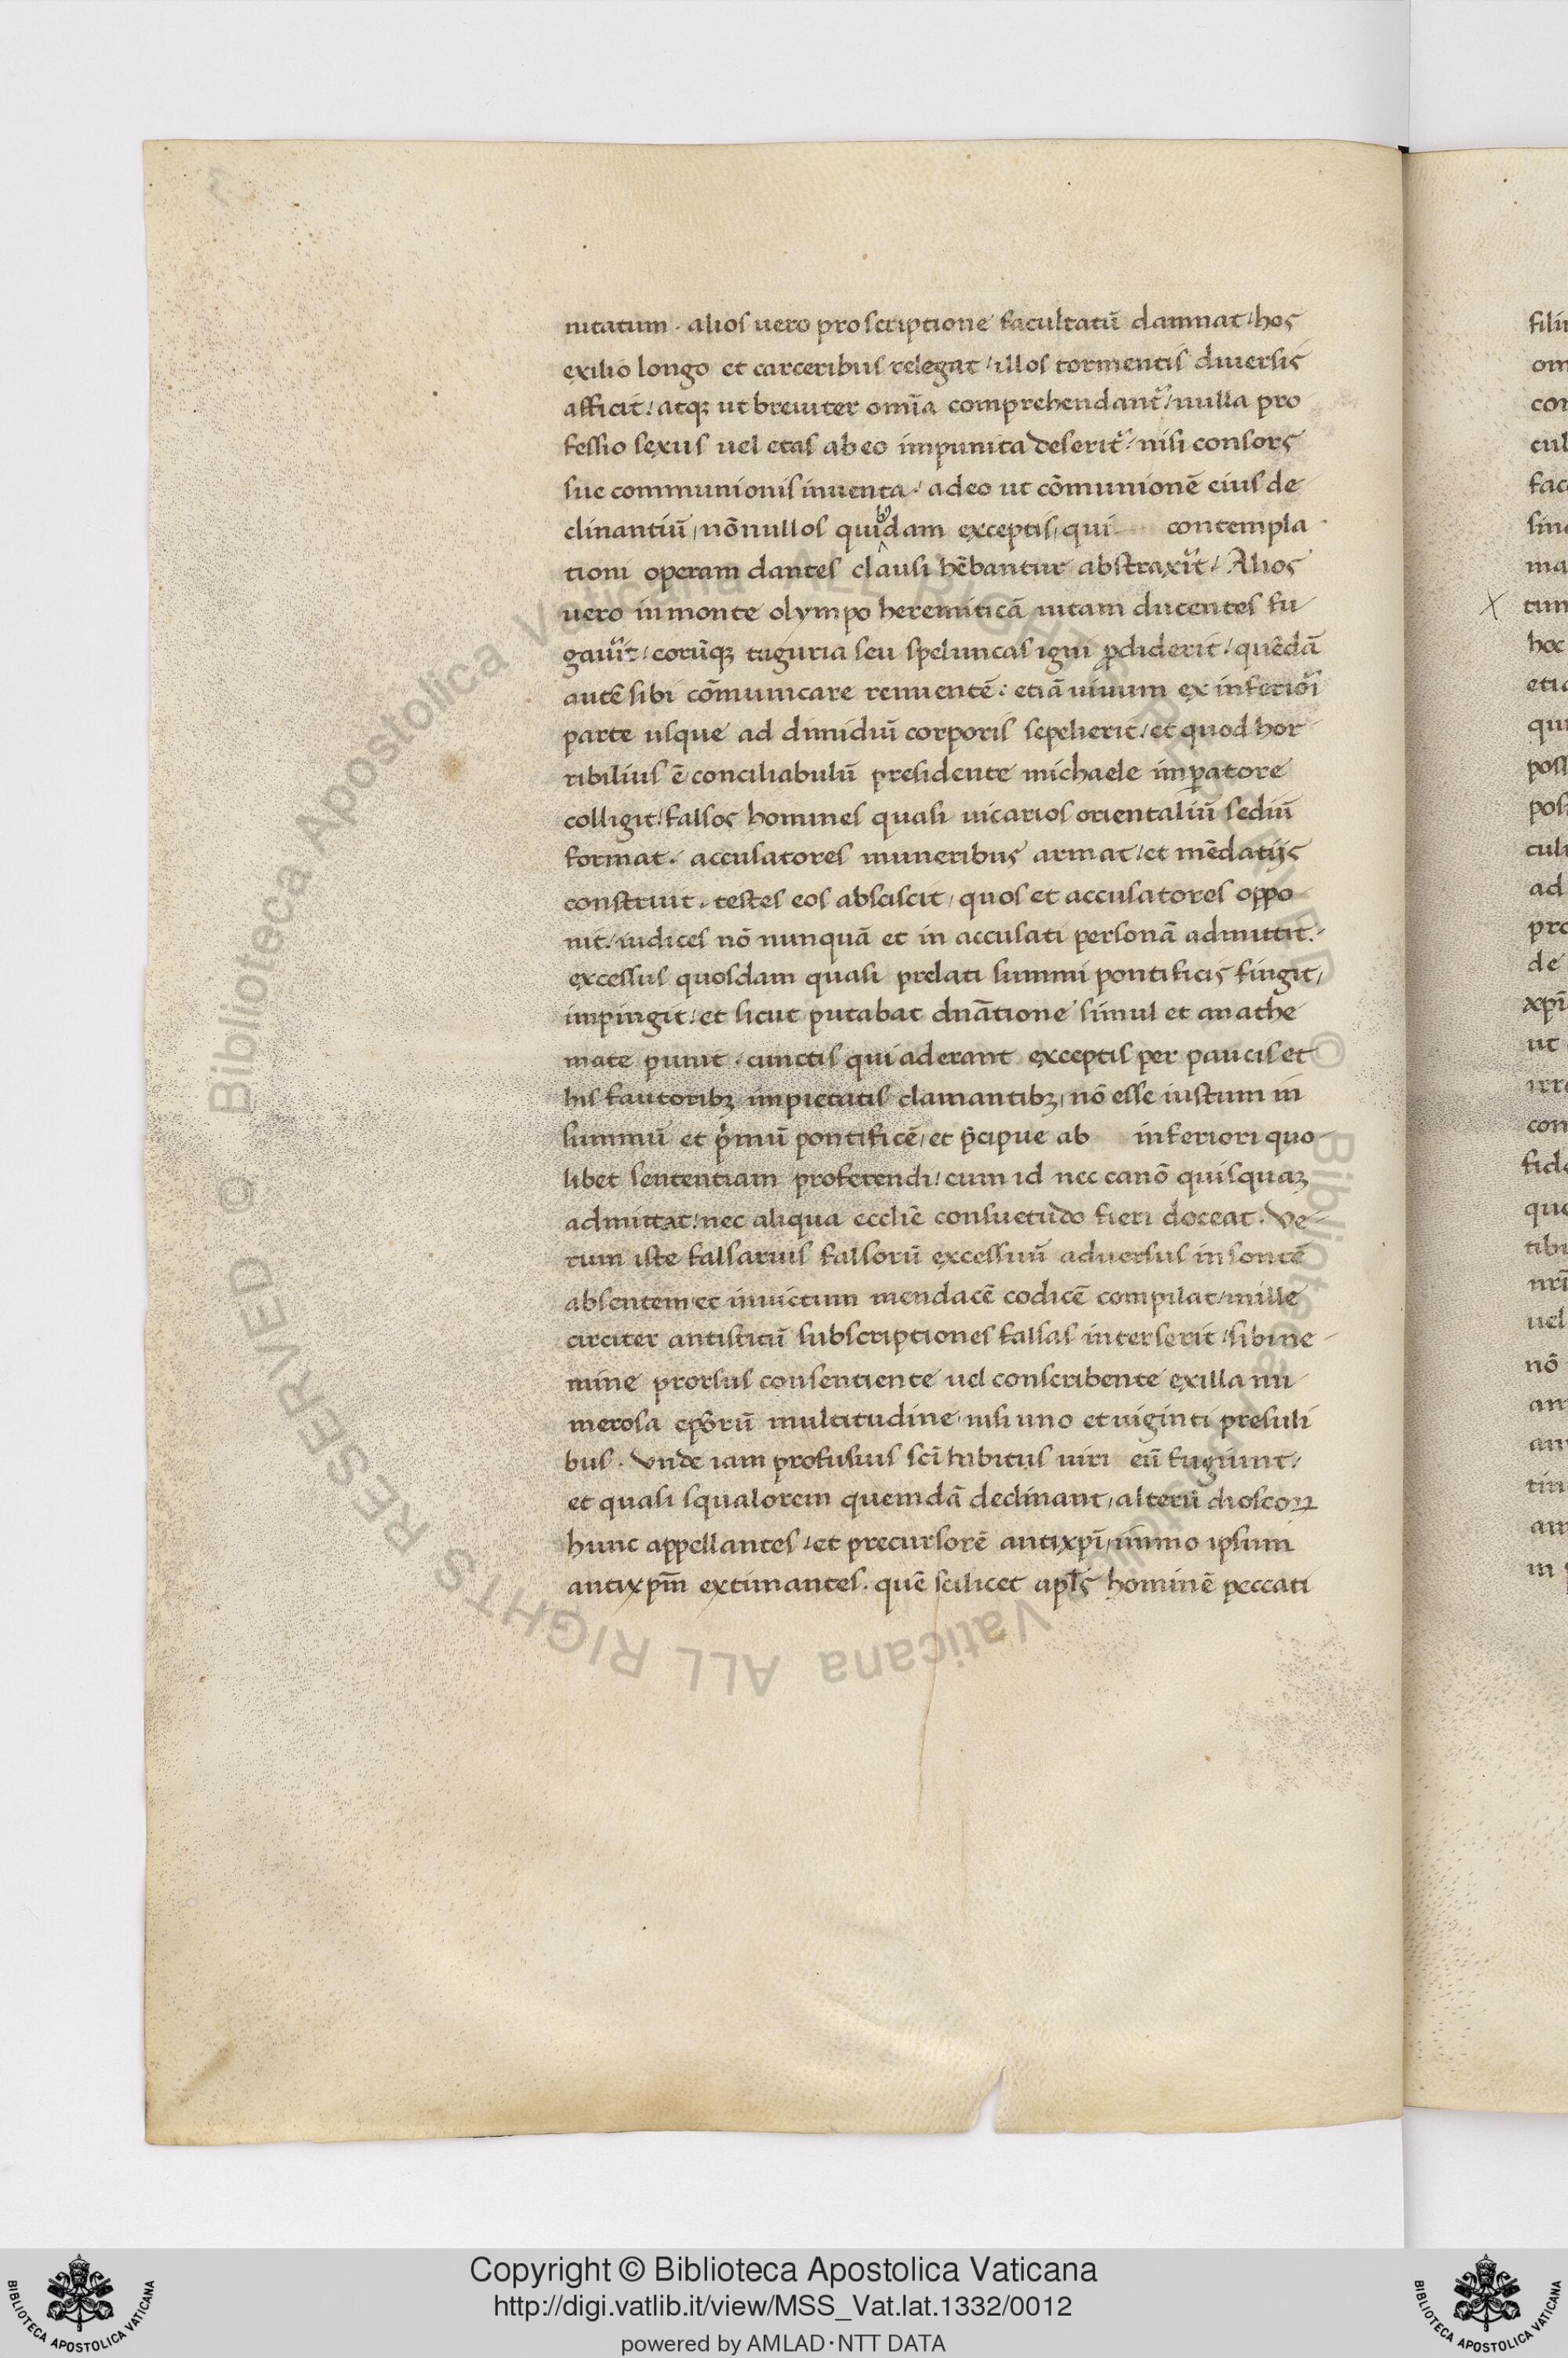 nitatum · alios uero proscriptione facultatū damnat / hos
exilio longo et carceribus relegat / illos tormentis diuersis
afficit / atqꝫ ut breuiter om̄ia comprehendant᷑ / nulla pro
fessio sexus uel etas ab eo impunita deserit᷑ / nisi consors
sue communionis inuenta / adeo ut cōmunionē eius de
clinantiū, nōnullos quibꝰdam exceptis, qui contempla
tioni operam dantes clausi hēbantur abstraxe᷑it / Alios
uero in monte olympo heremiticā uitam ducentes fu
gaue᷑it / eorūqꝫ tuguria seu speluncas igni ꝓdiderit / quēdā
autē sibi cōmunicare renuentē : etiā uiuum ex inferiori
parte usque ad dimidiū corporis sepelierit / et quod hor
ribilius ē conciliabulū presidente michaele imꝑatore
colligit / falsos homines quasi uicarios orientaliū sediū
format · accusatores muneribus armat / et mēdatijs
construit · testes eos absciscit, quos et accusatores oppo
nit / iudices nō nunquā et in accusati personā admittit ·
excessus quosdam quasi prelati summi pontificis fingit,
impingit / et sicut putabat dn̄atione simul et anathe
mate punit · cunctis qui aderant exceptis per paucis et
his fautoribꝫ impietatis clamantibꝫ, nō esse iustum in
summū et pͥmū pontificē, et p̄cipue ab inferiori quo-
libet sententiam proferendi / cum id nec canō quisquaꝫ
admittat / nec aliqua ecclīe consuetudo fieri doceat · Ve-
rum iste falsarius falsorū excessuū aduersus insontē
absentem et inuictum mendacē codicē compilat / mille
circiter antistitū subscriptiones fallas interserit / sibi ne-
mine prorsus consentiente uel conscribente ex illa nu
merosa ep̄orū multitudine, nisi uno et uiginti presuli
bus · Vnde iam profusius sc̄i habitus uiri eū fugiunt /
et quasi squalorem quemdā declinant, alterū dioscoꝝ
hunc appellantes / et precursorē antixp̄i, immo ipsum
antixp̄m extimantes · quē scilicet apl̄s hominē peccati
X
Copyright © Biblioteca Apostolica Vaticana
http://digi.vatlib.it/view/MSS_Vat.lat.1332/0012
powered by AMLAD·NTT DATA
BIBLIOTECA APOSTOLICA VATICANA
BIBLIOTECA APOSTOLICA VATICANA
© Biblioteca Apostolica Vaticana ALL RIGHTS RESERVED © Biblioteca Apostolica Vaticana ALL RIGHTS RESERVED